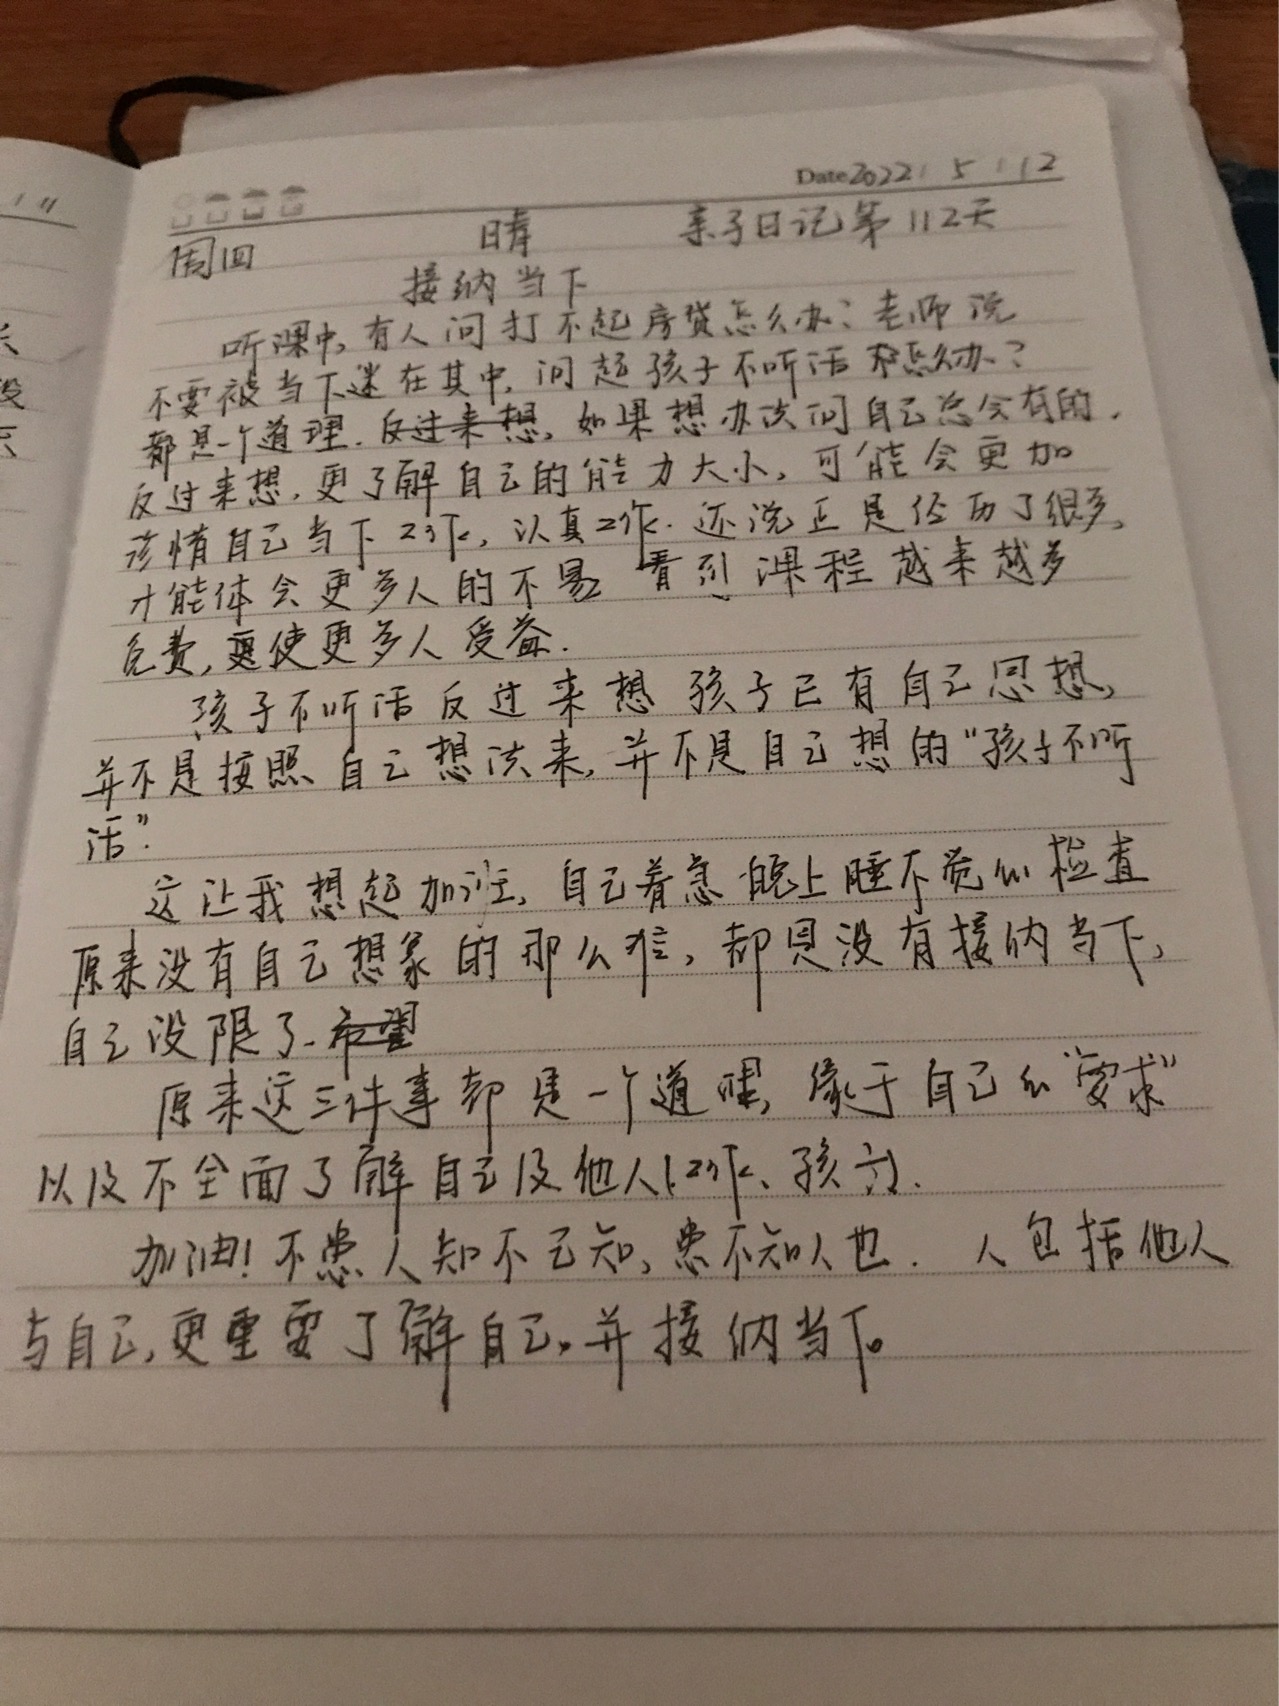 Date 2022 / 5 / 12
周四 晴 亲子日记第112天
接纳当下
听课中，有人问打不起房贷怎么办？老师说
不要被当下迷在其中，问起孩子不听话 怎么办？
都是一个道理．反过来想，如果想办法问自己总会有的．
反过来想，更了解自己的能力大小，可能会更加
珍惜自己当下工作，认真工作．还说正是经历了很多，
才能体会更多人的不易 看到课程越来越多
免费，更使更多人受益．
孩子不听话反过来想 孩子已有自己思想，
并不是按照自己想法来，并不是自己想的“孩子不听
话”．
这让我想起加班，自己着急晚上睡不觉 检查
原来没有自己想象的那么难，都是没有接纳当下，
自己没限了．希望
原来这三件事都是一个道理，缘于自己的“要求”
以及不全面了解自己及他人（工作、孩子）．
加油！不患人知不己知，患不知人也． 人包括他人
与自己，更重要了解自己。并接纳当下。